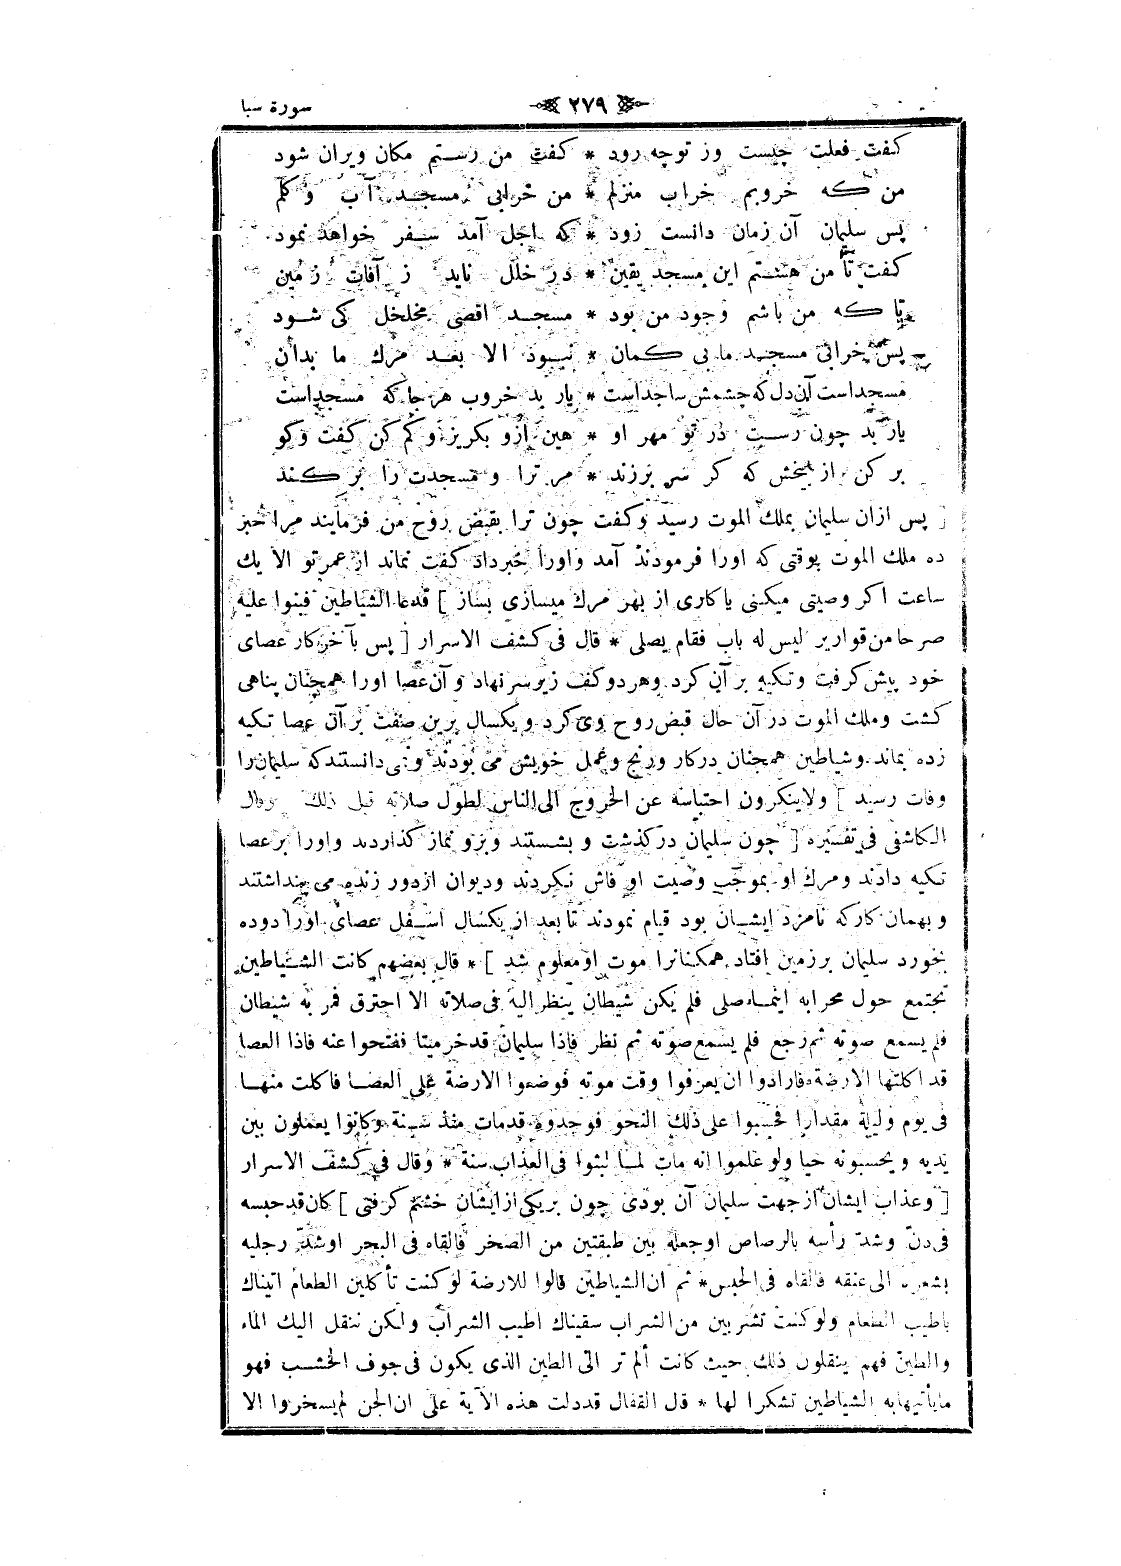 سورة سبا
٢٧٩
كفت فعلت چيست وز توچه رود * كفت من رستم مكان ويران شود
من كه خروبم خراب منزلم * من خرابى مسجد آب وكلم
پس سليمان آن زمان دانست زود * كه اجل آمد سفر خواهد نمود
كفت تا من هستم اين مسجد يقين * در خلل نايد ز آفات زمين
تا كه من باشم وجود من بود * مسجد اقصى مخلخل كى شود
پس خرابى مسجد ما بى كمان * نبود الا بعد مرك ما بدان
مسجداست آن دل كه چشمش ساجداست * يار بد خروب هرجا كه مسجداست
يار بد چون رست در تو مهر او * هين ازو بكريز وكم كن كفت وكو
بر كن از بيخش كه كر سر برزند * مر ترا و مسجدت را بر كند
[ پس ازان سليمان بملك الموت رسيد وكفت چون ترا بقبض روح من فرمايند مرا خبر
ده ملك الموت بوقتى كه اورا فرمودند آمد واورا خبرداد كفت نماند از عمر تو الا يك
ساعت اكر وصيتى ميكنى ياكارى از بهر مرك ميسازى بساز ] فدعا الشياطين فبنوا عليه
صرحا من قوارير ليس له باب فقام يصلى * قال فى كشف الاسرار [ پس بآخركار عصاى
خود پيش كرفت وتكيه بر آن كرد وهردوكف زير سر نهاد وآن عصا اورا همچنان پناهى
كشت وملك الموت در آن حال قبض روح وى كرد ويكسال برين صفت بر آن عصا تكيه
زده بماند وشياطين همچنان دركار ورنج وعمل خويش مى بودند ونمى دانستندكه سليمان را
وفات رسيد ] ولاينكرون احتباسه عن الخروج الى الناس لطول صلاته قبل ذلك وقال
الكاشفى فى تفسيره [ چون سليمان دركذشت و بشستند وبرو نماز كذاردند واورا بر عصا
تكيه دادند ومرك او بموجب وصيت او فاش نكردند وديوان ازدور زنده مى پنداشتند
و بهمان كاركه نامزد ايشان بود قيام نمودند تا بعد از يكسال اسفل عصاى اورا دوده
بخورد سليمان بر زمين افتاد همكنانرا موت او معلوم شد ] * قال بعضهم كانت الشياطين
تجتمع حول محرابه اينما صلى فلم يكن شيطان ينظر اليه فى صلاته الا احترق فمر به شيطان
فلم يسمع صوته ثم رجع فلم يسمع صوته ثم نظر فاذا سليمان قد خر ميتا ففتحوا عنه فاذا العصا
قد اكلتها الارضة فارادوا ان يعرفوا وقت موته فوضعوا الارضة على العصا فاكلت منها
فى يوم وليلة مقدارا فحسبوا على ذلك النحو فوجدوه قدمات منذ سنة وكانوا يعملون بين
يديه ويحسبونه حيا ولو علموا انه مات لما لبثوا فى العذاب سنة * وقال فى كشف الاسرار
[ وعذاب ايشان ازجهت سليمان آن بودى چون بريكى از ايشان خشم كرفتى ] كان قدحبسه
فى دنّ وشد رأسه بالرصاص اوجعله بين طبقتين من الصخر فالقاه فى البحر اوشدّ رجليه
بشعره الى عنقه فالقاه فى الحبس * ثم ان الشياطين قالوا للارضة لوكنت تأكلين الطعام اتيناك
باطيب الطعام ولوكنت تشربين من الشراب سقيناك اطيب الشراب ولكن ننقل اليك الماء
والطين فهم ينقلون ذلك حيث كانت ألم تر الى الطين الذى يكون فى جوف الخشب فهو
مايأتيهابه الشياطين تشكرا لها * قل القفال قددلت هذه الآية على ان الجن لم يسخروا الا